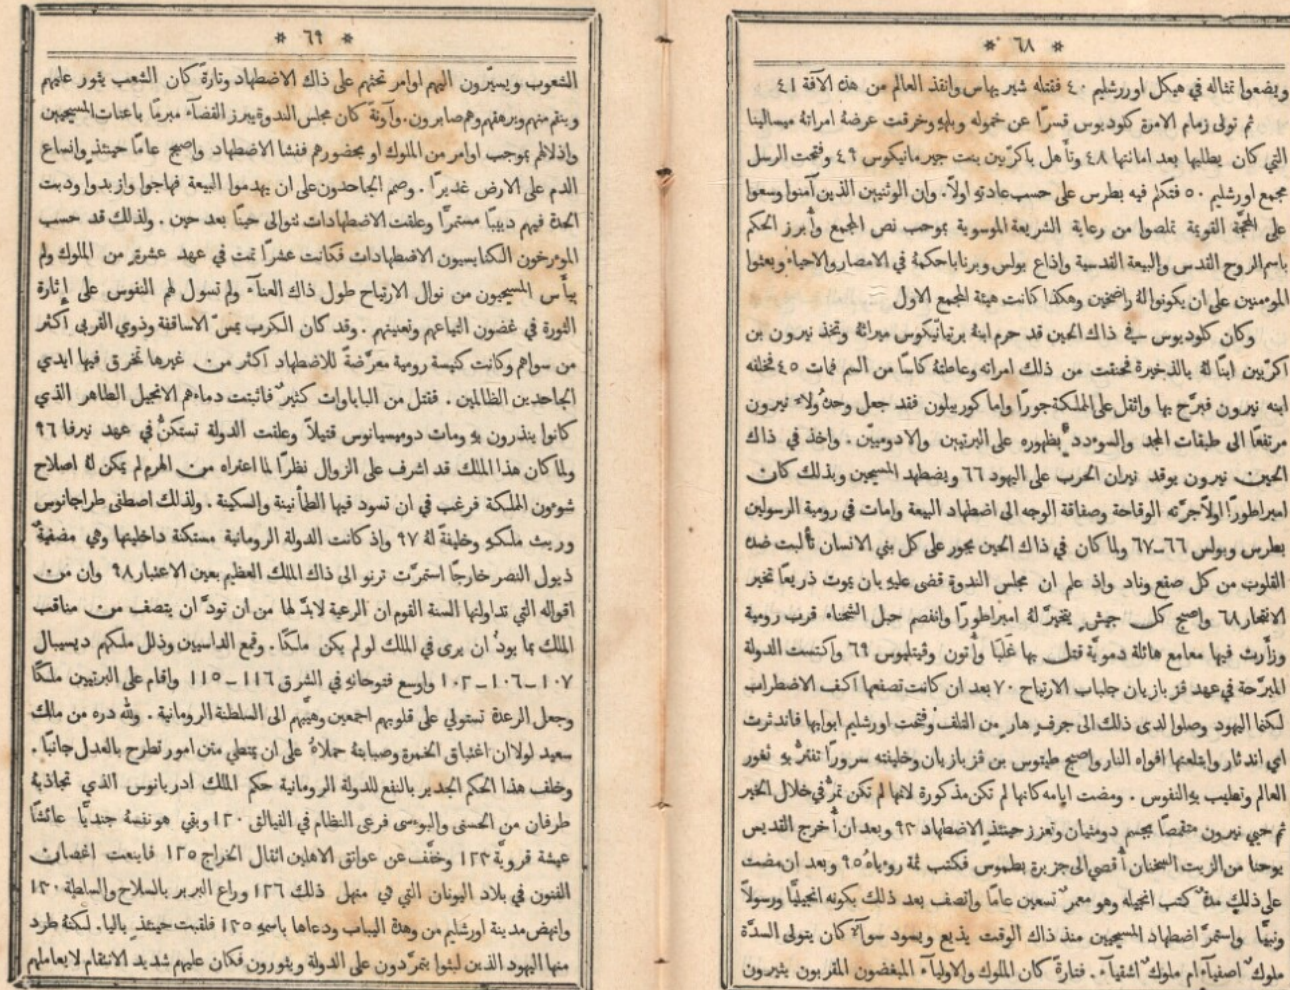 * ٦٨ *
ويضعوا تمثاله في هيكل اورشليم ٤٠ فقتله شيريهاس وانقذ العالم من هذه الآفة ٤١
ثم تولى زمام الامرة كلوديوس قسرًا عن خموله وبلهِ وخرقت عرضهُ امراتهُ ميسالينا
التي كان يطلبها بعد اماتتها ٤٨ وتأهل باكرّبين بنت جيرمانيكوس ٤٩ وفتحت الرسل
مجمع اورشليم ٥٠ فتكلم فيه بطرس على حسب عادتهِ اولاً. وان الوثنيين الذين آمنوا وسعوا
على المحجّة القويمة تملصوا من رعاية الشريعة الموسوية بموجب نص المجمع وأُبرز الحكم
باسم الروح القدس والبيعة القدسية واذاع بولس وبرنابا حكمهُ في الامصار والاحياء وبعثوا
المومنين على ان يكونوا لهُ راضخين وهكذا كانت هيئة المجمع الاول
وكان كلوديوس في ذاك الحين قد حرم ابنهُ بريتانيكوس ميراثهُ وتخذ نيرون بن
اكرّبين ابنًا لهُ بالذخيرة فحنقت من ذلك امراته وعاطتهُ كاسًا من السم فمات ٤٥ فخلفه
ابنه نيرون فبرّح بها واثقل على المملكة جورًا واما كوربيلون فقد جعل وحدهُ ولاء نيرون
مرتفعًا الى طبقات المجد والسودد بظهوره على البرتيين والادوميّين. واخذ في ذاك
الحين نيرون يوقد نيران الحرب على اليهود ٦٦ ويضطهد المسيحيين وبذلك كان
امبراطورًا اولاً جرّته الوقاحة وصفاقة الوجه الى اضطهاد البيعة وامات في رومية الرسولين
بطرس وبولس ٦٦-٦٧ ولما كان في ذاك الحين يجور على كل بني الانسان تألبت ضده
القلوب من كل صقع وناد واذ علم ان مجلس الندوة قضى عليهِ بان يموت ذريعًا تخير
الانتحار ٦٨ واصبح كل جيش يتخيرّ لهُ امبراطورًا وانفصم حبل الشحناء قرب رومية
وزأرت فيها معامع هائلة دمويّة قتل بها غَلبَا وأتون وفيتلهوس ٦٩ واكتست الدولة
المبرّحة في عهد فزبازيان جلباب الارتياح ٧٠ بعد ان كانت تصفعها اكف الاضطراب
لكنما اليهود وصلوا لدى ذلك الى جرف هار من التلف وفتحت اورشليم ابوابها فاندثرت
اي اندثار وابتلعتها افواه النار واصبح طيتوس بن فزبازيان وخليفته سرورًا تفترُّ بهِ ثغور
العالم وتطيب بهِ النفوس. ومضت ايامه كانها لم تكن مذكورة لانها لم تكن تمرُّ في خلال الخير
ثم حيي نيرون متقمصًا بجسم دومتيان وتعزز حينئذٍ الاضطهاد ٩٣ وبعد ان أُخرج القديس
يوحنا من الزيت السخنان أُقصي الى جزيرة بطموس فكتب ثمة روياهُ ٩٥ وبعد ان مضت
على ذلك مدةٌ كتب انجيله وهو معمرٌ تسعين عامًا واتصف بعد ذلك بكونه انجيليًّا ورسولاً
ونبيًّا واستمرّ اضطهاد المسيحيين منذ ذاك الوقت يذيع ويسود سوآءٌ كان يتولى السدّة
ملوكٌ اصفيآء ام ملوكٌ اشقيآء. فتارةً كان الملوك والاوليآء المبغضون المقربون يثيرون
* ٦٩ *
الشعوب ويسيّرون اليهم اوامر تحثهم على ذاك الاضطهاد وتارةً كان الشعب يثور عليهم
وينقم منهم ويرهقهم وهم صابرون. وآونةً كان مجلس الندوة يبرز القضآء مبرمًا باعنات المسيحيين
واذلالهم بموجب اوامر من الملوك او بحضورهم ففشا الاضطهاد واصبح عامًا حينئذٍ وانساع
الدم على الارض غديرًا. وصمم الجاحدون على ان يهدموا البيعة فهاجوا وازبدوا ودبت
الحدة فيهم دبيبًا مستمرًا وعلقت الاضطهادات نتوالى حينًا بعد حين. ولذلك قد حسب
المورخون الكنايسيون الاضطهادات فكانت عشرًا تمت في عهد عشرةٍ من الملوك ولم
ييأس المسيحيون من نوال الارتياح طول ذاك العنآء ولم تسول لهم النفوس على إثارة
الثورة في غضون التياعهم وتعنيتهم. وقد كان الكرب يمسّ الاساقفة وذوي القربى اكثر
من سواهم وكانت كنيسة رومية معرّضةً للاضطهاد اكثر من غيرها تخرق فيها ايدي
الجاحدين الظالمين. فقتل من الباباوات كثيرٌ فاثبتت دماءهم الانجيل الطاهر الذي
كانوا ينذرون بهِ ومات دوميسيانوس قتيلاً وعلقت الدولة تستكنُّ في عهد نيرفا ٩٦
ولما كان هذا الملك قد اشرف على الزوال نظرًا لما اعتراه من الهرم لم يمكن لهُ اصلاح
شوءون المملكة فرغب في ان تسود فيها الطمأنينة والسكينة. ولذلك اصطفى طراجانوس
وريث ملكهِ وخليفةً لهُ ٩٧ واذ كانت الدولة الرومانية مستكنة داخليتها وهي مضفيةٌ
ذيول النصر خارجًا استمرّت ترنو الى ذاك الملك العظيم بعين الاعتبار ٩٨ وان من
اقواله التي تداولتها السنة القوم ان الرعية لابدّ لها من ان تودَّ ان يتصف من مناقب
الملك بما يودُّ ان يرى في الملك لو لم يكن ملكًا. وقمع الداسيين وذلل ملكهم ديسيبال
١٠٢-١٠٦-١٠٧ واوسع فتوحاتهِ في الشرق ١١٥-١١٦ واقام على البرتيين ملكًا
وجعل الرعدة تستولي على قلوبهم اجمعين وهيّبهم الى السلطنة الرومانية. ولله دره من مالك
سعيد لولا ان اغتباق الخمرة وصبابتهُ حملاهُ على ان يمتطي متن امور تطرح بالعدل جانبًا.
وخلف هذا الحكم الجدير بالنفع للدولة الرومانية حكم الملك ادريانوس الذي تجاذبهُ
طرفان من الحسنى والبوسى فرعى النظام في الفيالق ١٢٠ وبقي هو نفسهُ جنديًّا عائشًا
عيشة قرويّة ١٢٣ وخفّف عن عواتق الاهلين اثقال الخراج ١٢٥ فاينعت اغصان
الفنون في بلاد اليونان التي هي منهل ذلك ١٢٦ وراع البربر بالسلاح والسلطة ١٣٠
وانهض مدينة اورشليم من وهدة اليباب ودعاها باسمهِ ١٣٥ فلقبت حينئذٍ باليا. لكنهُ طرد
منها اليهود الذين لبثوا يتمرّدون على الدولة ويثورون فكان عليهم شديد الانتقام لايعاملهم